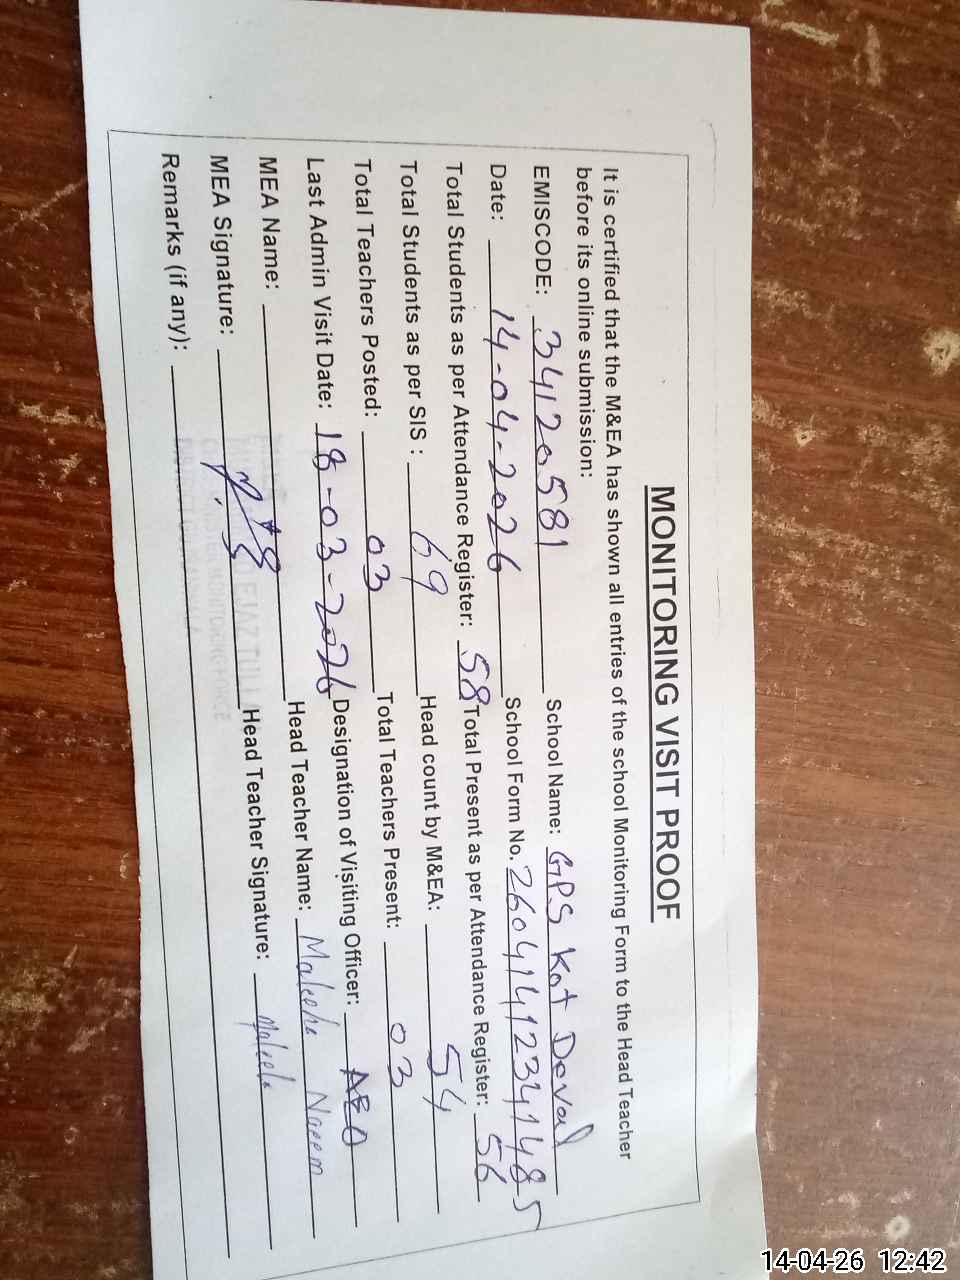 MONITORING VISIT PROOF
It is certified that the M&EA has shown all entries of the school Monitoring Form to the Head Teacher
before its online submission:
EMISCODE: 34120581 School Name: GPS Kot Daval
Date: 14-04-2026 School Form No. 26041412341485
Total Students as per Attendance Register: 58 Total Present as per Attendance Register: 56
Total Students as per SIS : 69 Head count by M&EA: 54
Total Teachers Posted: 03 Total Teachers Present: 03
Last Admin Visit Date: 18-03-2026 Designation of Visiting Officer: AEO
MEA Name: Head Teacher Name: Maleeha Naeem
MEA Signature: Head Teacher Signature: Maleeha
Remarks (if any):
14-04-26 12:42